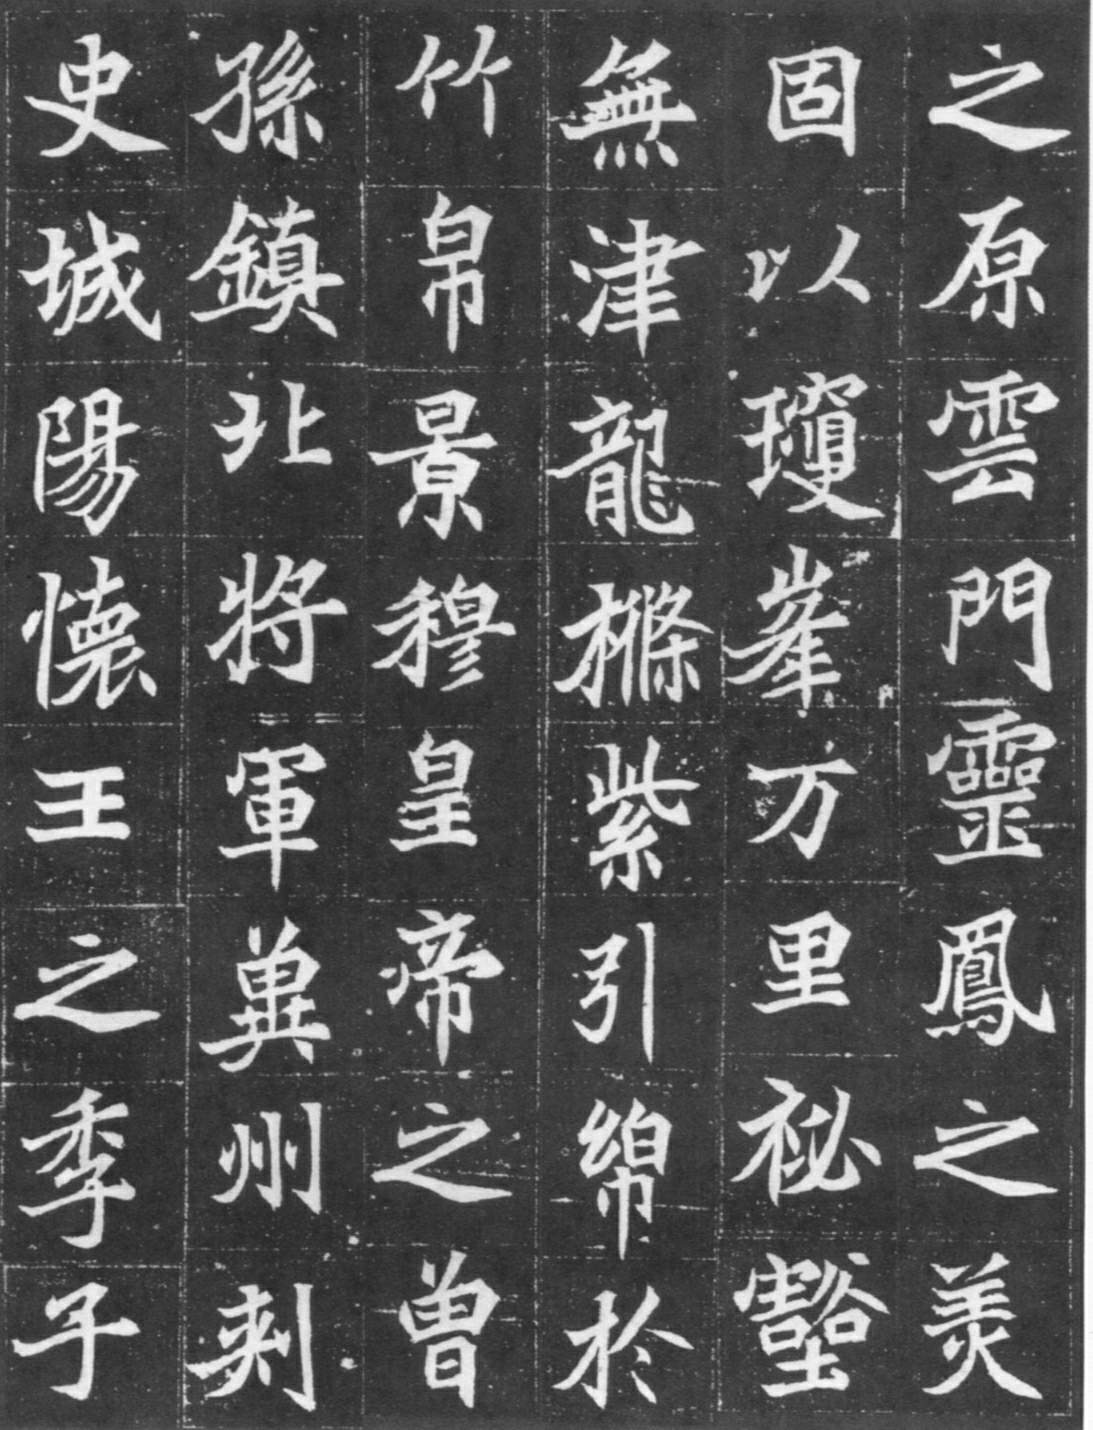 之原雲門靈鳳之美
固以瓊峯方里祕壑
無津龍樤紫引綿於
竹帛景穆皇帝之曾
孫鎮北將軍冀州刾
史城陽懷王之季子